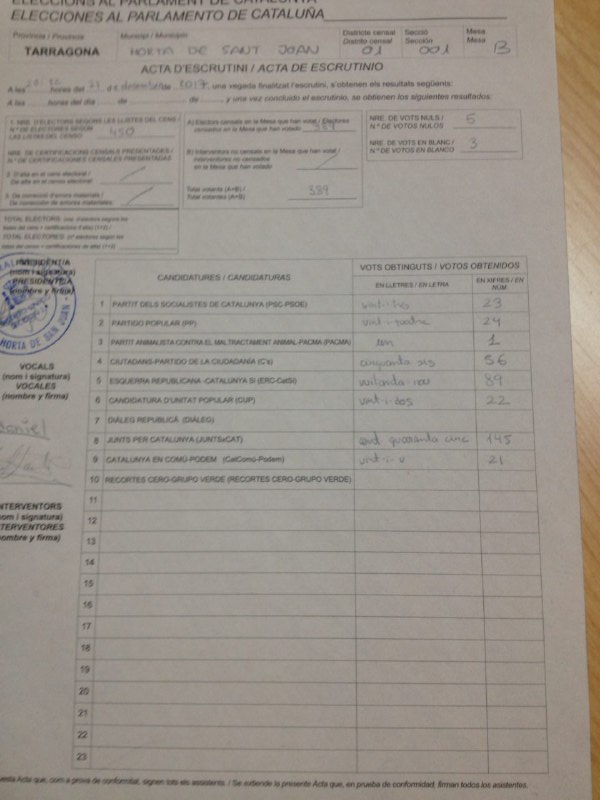 ELECCIONS AL PARLAMENT DE CATALUNYA
ELECCIONES AL PARLAMENTO DE CATALUÑA
Província / Provincia
TARRAGONA
Municipi / Municipio
HORTA DE SANT JOAN
Districte censal
Distrito censal
01
Secció
Sección
001
Mesa
Mesa
B
ACTA D'ESCRUTINI / ACTA DE ESCRUTINIO
A les hores del 21 de desembre de 2017, una vegada finalitzat l'escrutini, s'obtenen els resultats següents:
A las horas del día de de y una vez concluido el escrutinio, se obtienen los siguientes resultados:
1. NRE. D'ELECTORS SEGONS LES LLISTES DEL CENS /
N.º DE ELECTORES SEGÚN
LAS LISTAS DEL CENSO
450
NRE. DE CERTIFICACIONS CENSALS PRESENTADES /
N.º DE CERTIFICACIONES CENSALES PRESENTADAS
2. D'alta en el cens electoral /
De alta en el censo electoral
3. De correcció d'errors materials /
De corrección de errores materiales
TOTAL ELECTORS
TOTAL ELECTORES
A) Electors censats en la Mesa que han votat / Electores
censados en la Mesa que han votado
389
B) Interventors no censats en la Mesa que han votat /
Interventores no censados
en la Mesa que han votado
Total votants (A+B) /
Total votantes (A+B)
389
NRE. DE VOTS NULS /
N.º DE VOTOS NULOS
5
NRE. DE VOTS EN BLANC /
N.º DE VOTOS EN BLANCO
3
PRESIDENT/A
(nom i signatura)
PRESIDENTE/A
(nombre y firma)
HORTA DE SAN JUAN
CANDIDATURES / CANDIDATURAS
VOTS OBTINGUTS / VOTOS OBTENIDOS
EN LLETRES / EN LETRA
EN XIFRES / EN NÚM.
1 PARTIT DELS SOCIALISTES DE CATALUNYA (PSC-PSOE) vint-i-tres 23
2 PARTIDO POPULAR (PP) vint-i-quatre 24
3 PARTIT ANIMALISTA CONTRA EL MALTRACTAMENT ANIMAL-PACMA (PACMA) un 1
4 CIUTADANS-PARTIDO DE LA CIUDADANÍA (C's) cinquanta sis 56
5 ESQUERRA REPUBLICANA -CATALUNYA SÍ (ERC-CatSí) vuitanta-nou 89
6 CANDIDATURA D'UNITAT POPULAR (CUP) vint-i-dos 22
7 DIÀLEG REPUBLICÀ (DIÀLEG)
8 JUNTS PER CATALUNYA (JUNTSxCAT) quaranta cinc 145
9 CATALUNYA EN COMÚ-PODEM (CatComú-Podem) vint-i-u 21
10 RECORTES CERO-GRUPO VERDE (RECORTES CERO-GRUPO VERDE)
11
12
13
14
15
16
17
18
19
20
21
22
23
VOCALS
(nom i signatura)
VOCALES
(nombre y firma)
INTERVENTORS
(nom i signatura)
INTERVENTORES
(nombre y firma)
esta Acta que, com a prova de conformitat, signen tots els assistents. / Se extiende la presente Acta que, en prueba de conformidad, firman todos los asistentes.